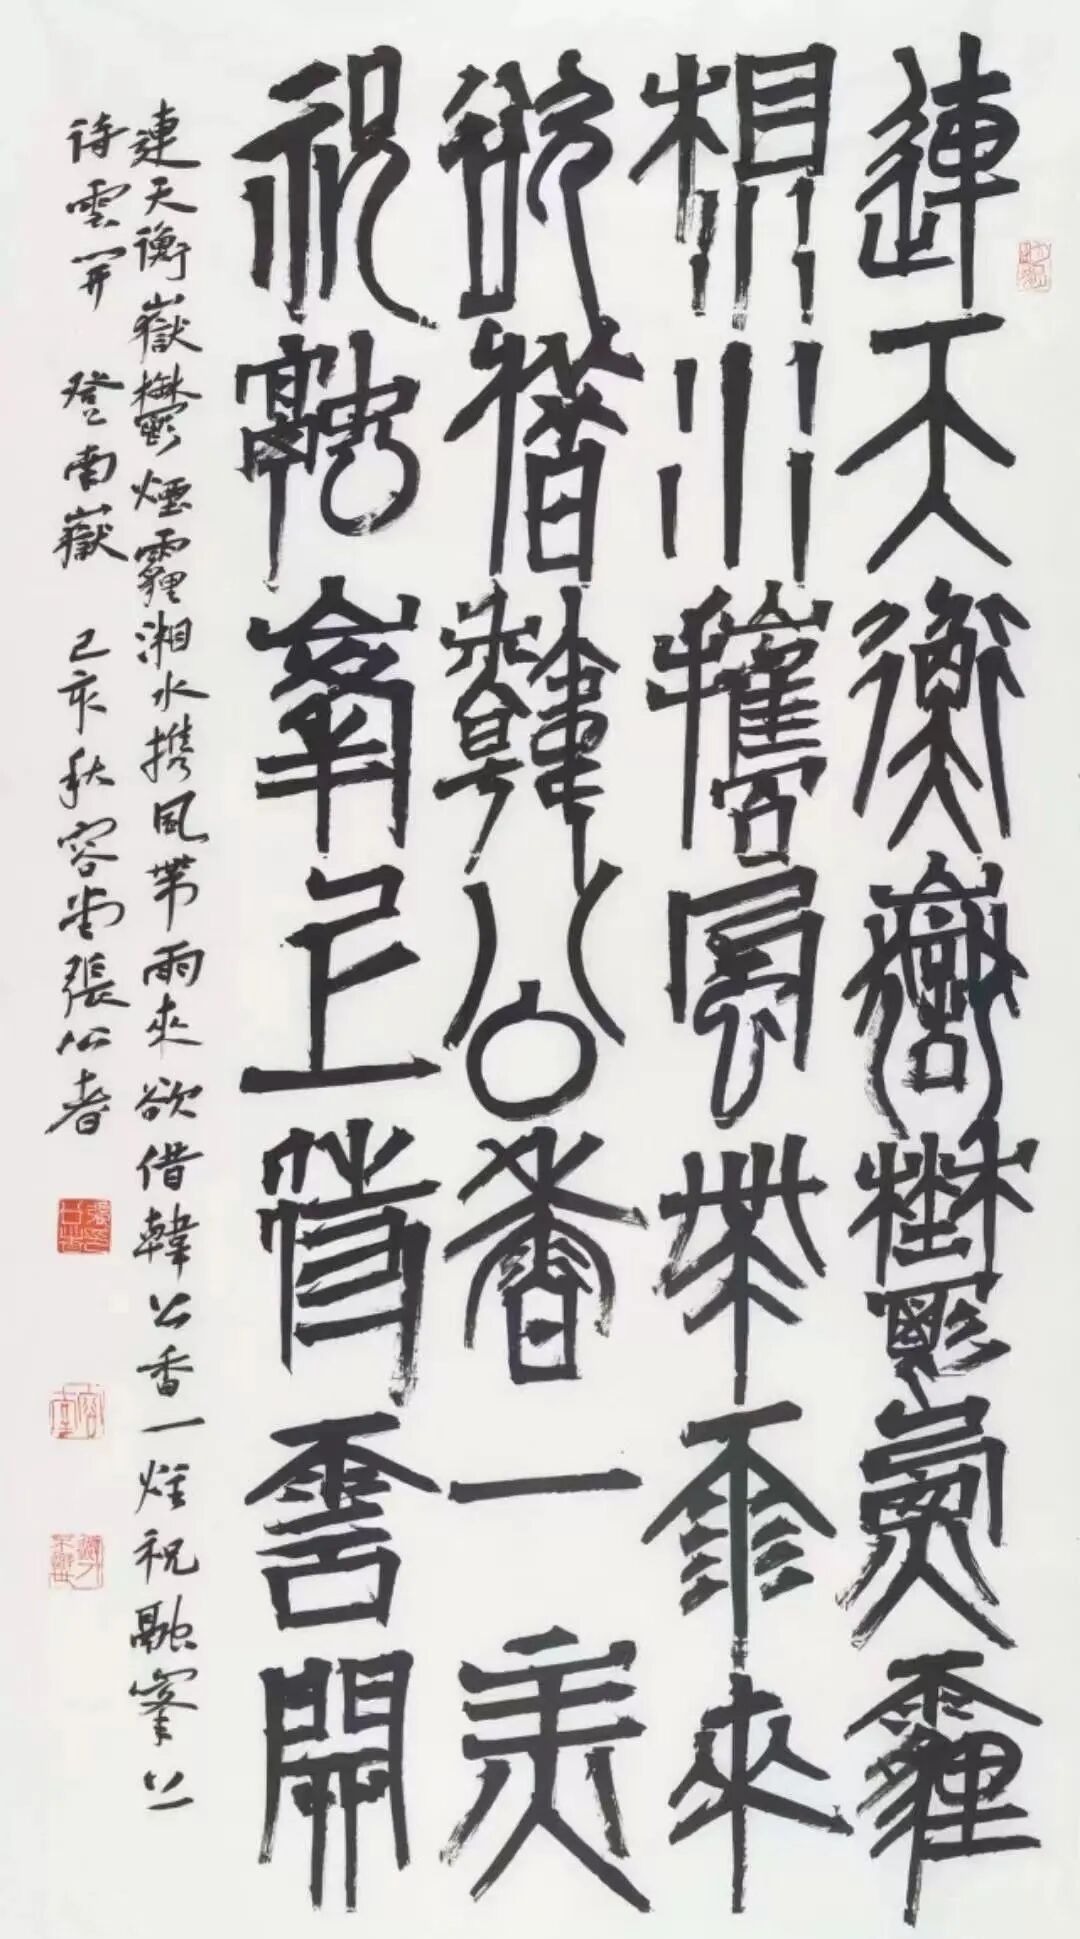 連天衡嶽鬱煙霾
湘水攜風帶雨來
欲借韓公香一炷
祝融峯上待雲開
連天衡嶽鬱煙霾湘水携風帶雨來欲借韓公香一炷祝融峯上
待雲開 登南嶽 己亥秋容堂張公者
容堂